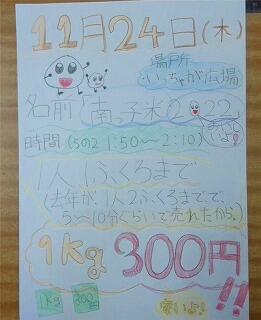 11月24日(木)
場戸所
いっちゃが広場
名前「南っ子米2022」
おいしいよ!
時間(5の2 1:50〜2:10)
1人1ふくろまで
(去年が、1人2ふくろまで、で、
5〜10分くらいで売れたから。)
1kg 300円!!
1kg 300円
安いよ!